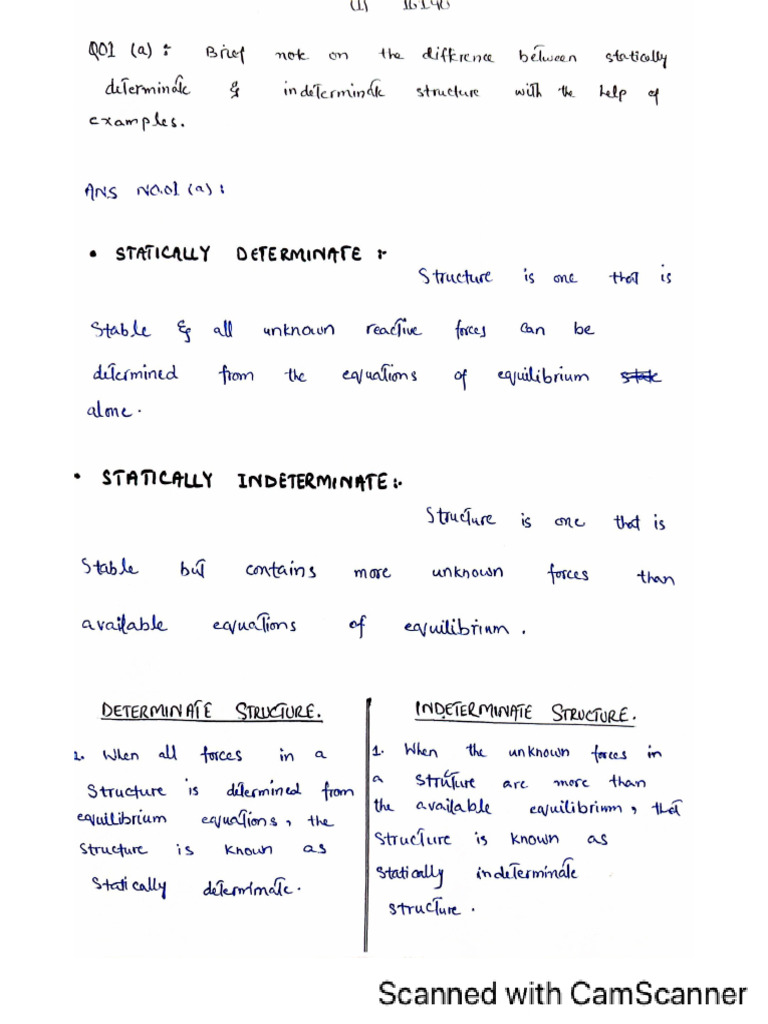 (1) 16196
Q01 (a) : Brief note on the difference between statically
determinate & indeterminate structure with the help of
examples.
ANS NO.01 (a) :
• STATICALLY DETERMINATE :-
Structure is one that is
stable & all unknown reactive forces can be
determined from the equations of equilibrium
alone.
• STATICALLY INDETERMINATE :-
Structure is one that is
stable but contains more unknown forces than
available equations of equilibrium.
DETERMINATE STRUCTURE.
1. When all forces in a
structure is determined from
equilibrium equations, the
structure is known as
statically determinate.
INDETERMINATE STRUCTURE.
1. When the unknown forces in
a struture are more than
the available equilibrium, that
structure is known as
statically indeterminate
structure.
Scanned with CamScanner